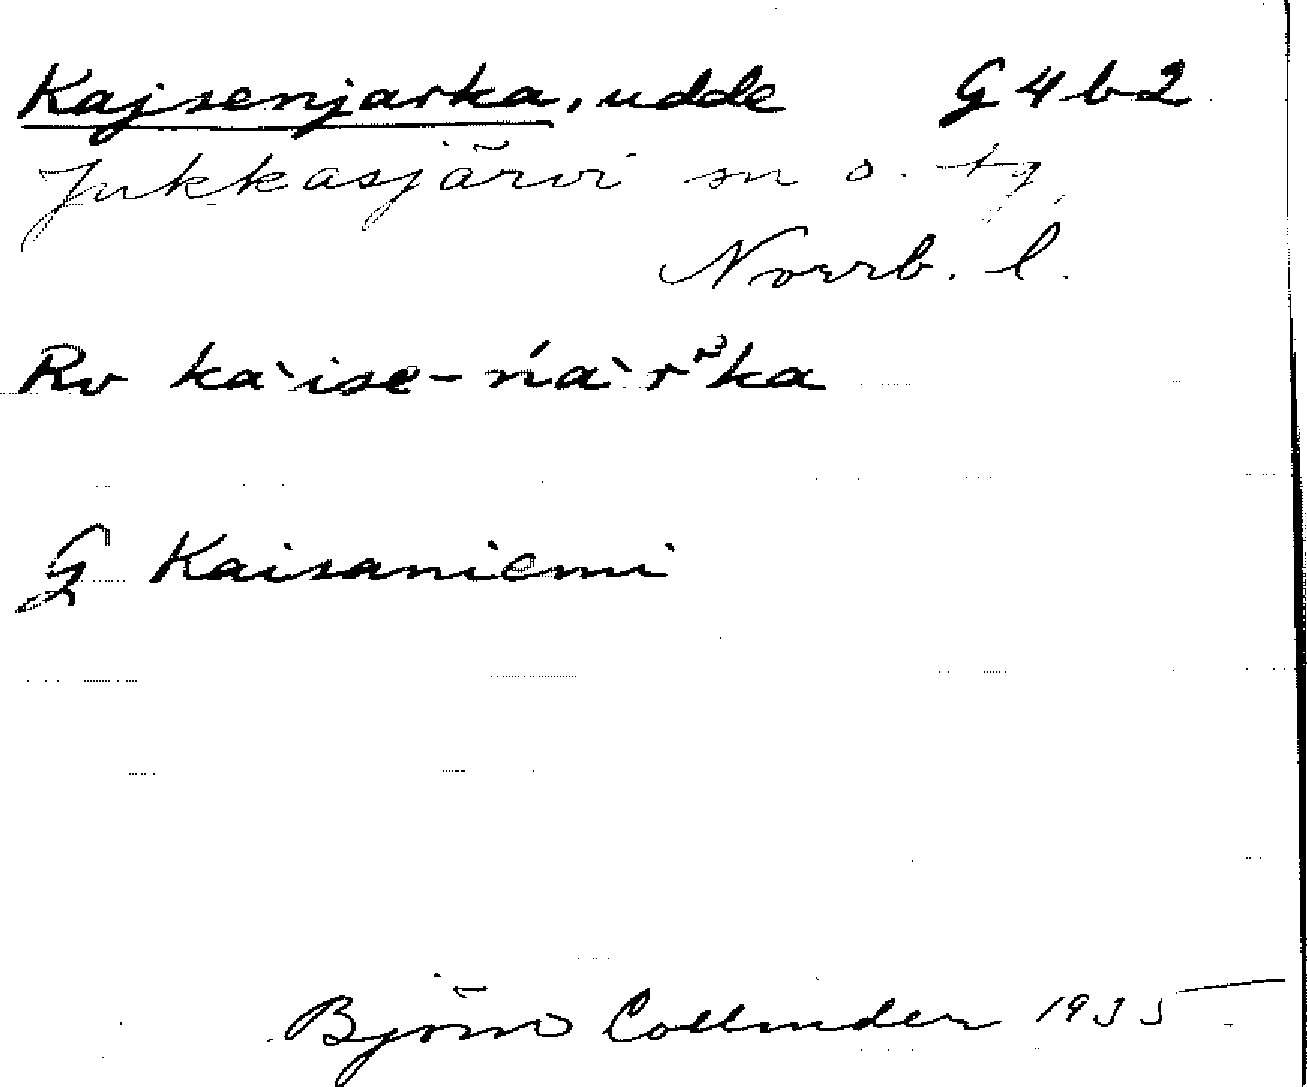 Kajsenjarka, udde G4b2
Jukkasjärvi sn o. tg,
Norrb. l.
Rv kàise-ńàrᵊka
G Kaisaniemi
Björn Collinder 1935